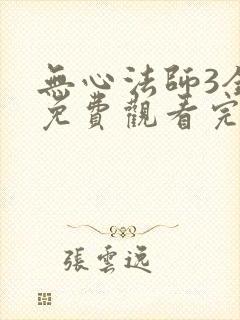 無心法師3全
免費觀看完
張雲遠